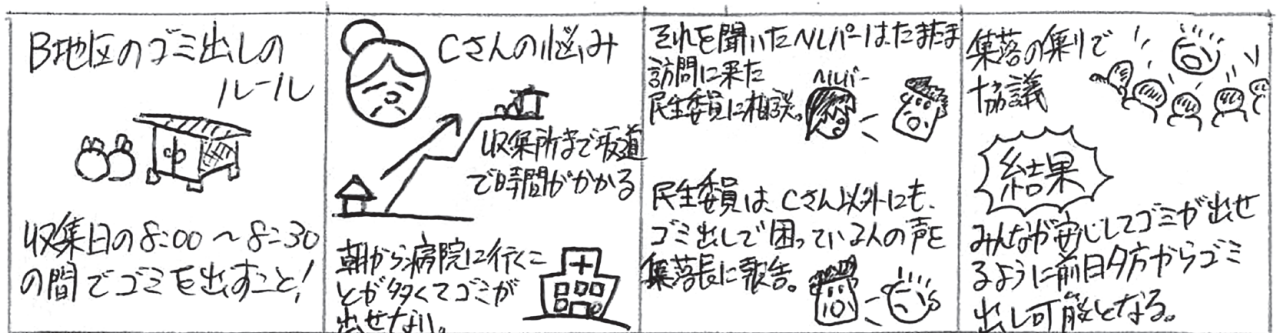 B地区のゴミ出しの
ルール
収集日の8:00〜8:30
の間でゴミを出すこと!
Cさんの悩み
収集所まで坂道
で時間がかかる
朝から病院に行くこ
とが多くてゴミが
出せない。
それを聞いたヘルパーはたまたま
訪問に来た
民生委員に相談。
ヘルパー
民生委員は、Cさん以外にも、
ゴミ出しで困っている人の声を
集落長に報告。
集落の集りで
協議
結果
みんなが安心してゴミが出せ
るように前日夕方からゴミ
出し可能となる。